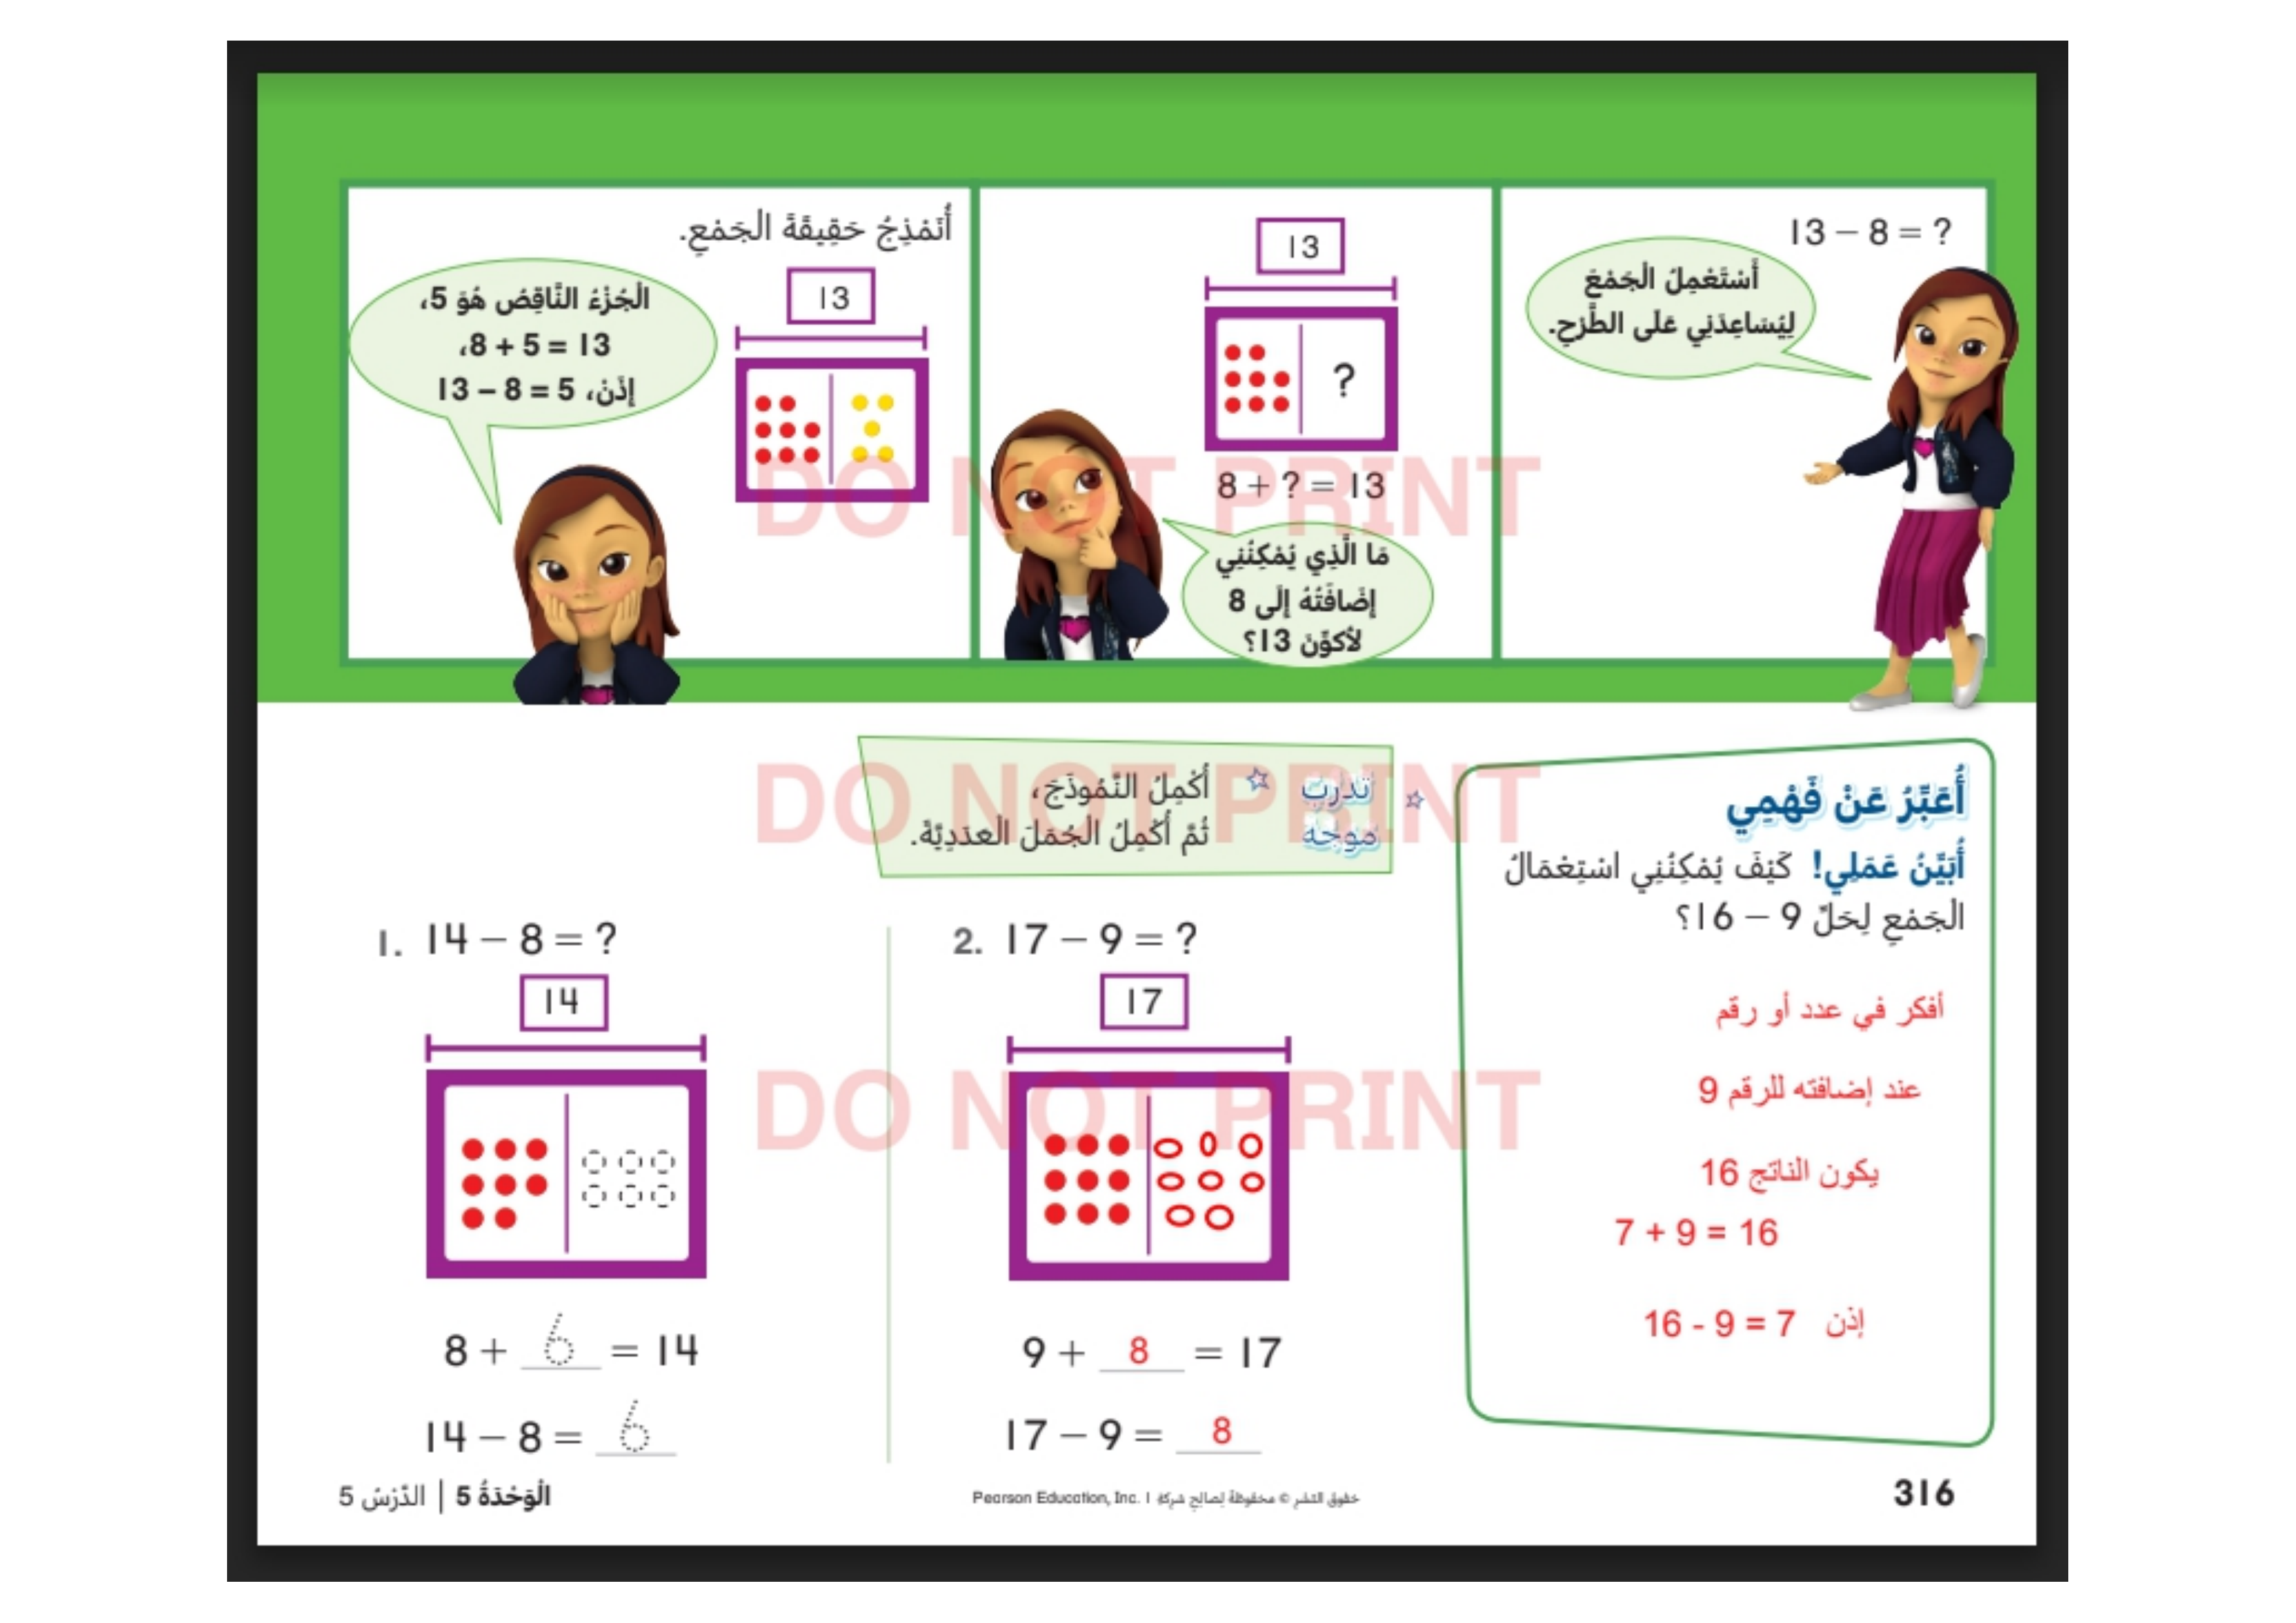 13 – 8 = ?
أَسْتَعْمِلُ الْجَمْعَ
لِيُسَاعِدَنِي عَلَى الطَّرْحِ.
13
?
8 + ? = 13
مَا الَّذِي يُمْكِنُنِي
إضَافَتُهُ إلَى 8
لأكوِّنَ 13؟
أُنَمْذِجُ حَقِيقَةَ الْجَمْعِ.
13
الْجُزْءُ النَّاقِصُ هُوَ 5،
8 + 5 = 13،
إذَنْ، 5 = 8 – 13
DO NOT PRINT
أُعَبِّرُ عَنْ فَهْمِي
أُبَيِّنُ عَمَلِي! كَيْفَ يُمْكِنُنِي اسْتِعْمَالُ
الْجَمْعِ لِحَلِّ 9 – 16؟
أفكر في عدد أو رقم
عند إضافته للرقم 9
يكون الناتج 16
7 + 9 = 16
إذن 16 - 9 = 7
تدرب
موجه
أُكْمِلُ النَّمُوذَجَ،
ثُمَّ أُكْمِلُ الْجُمَلَ الْعدَدِيَّةَ.
DO NOT PRINT
1. 14 – 8 = ?
14
8 + 6 = 14
14 – 8 = 6
2. 17 – 9 = ?
17
9 + 8 = 17
17 – 9 = 8
DO NOT PRINT
الْوَحْدَةُ 5 | الدَّرْسُ 5
حقوق النشر © محفوظة لصالح شركة Pearson Education, Inc. 1
316